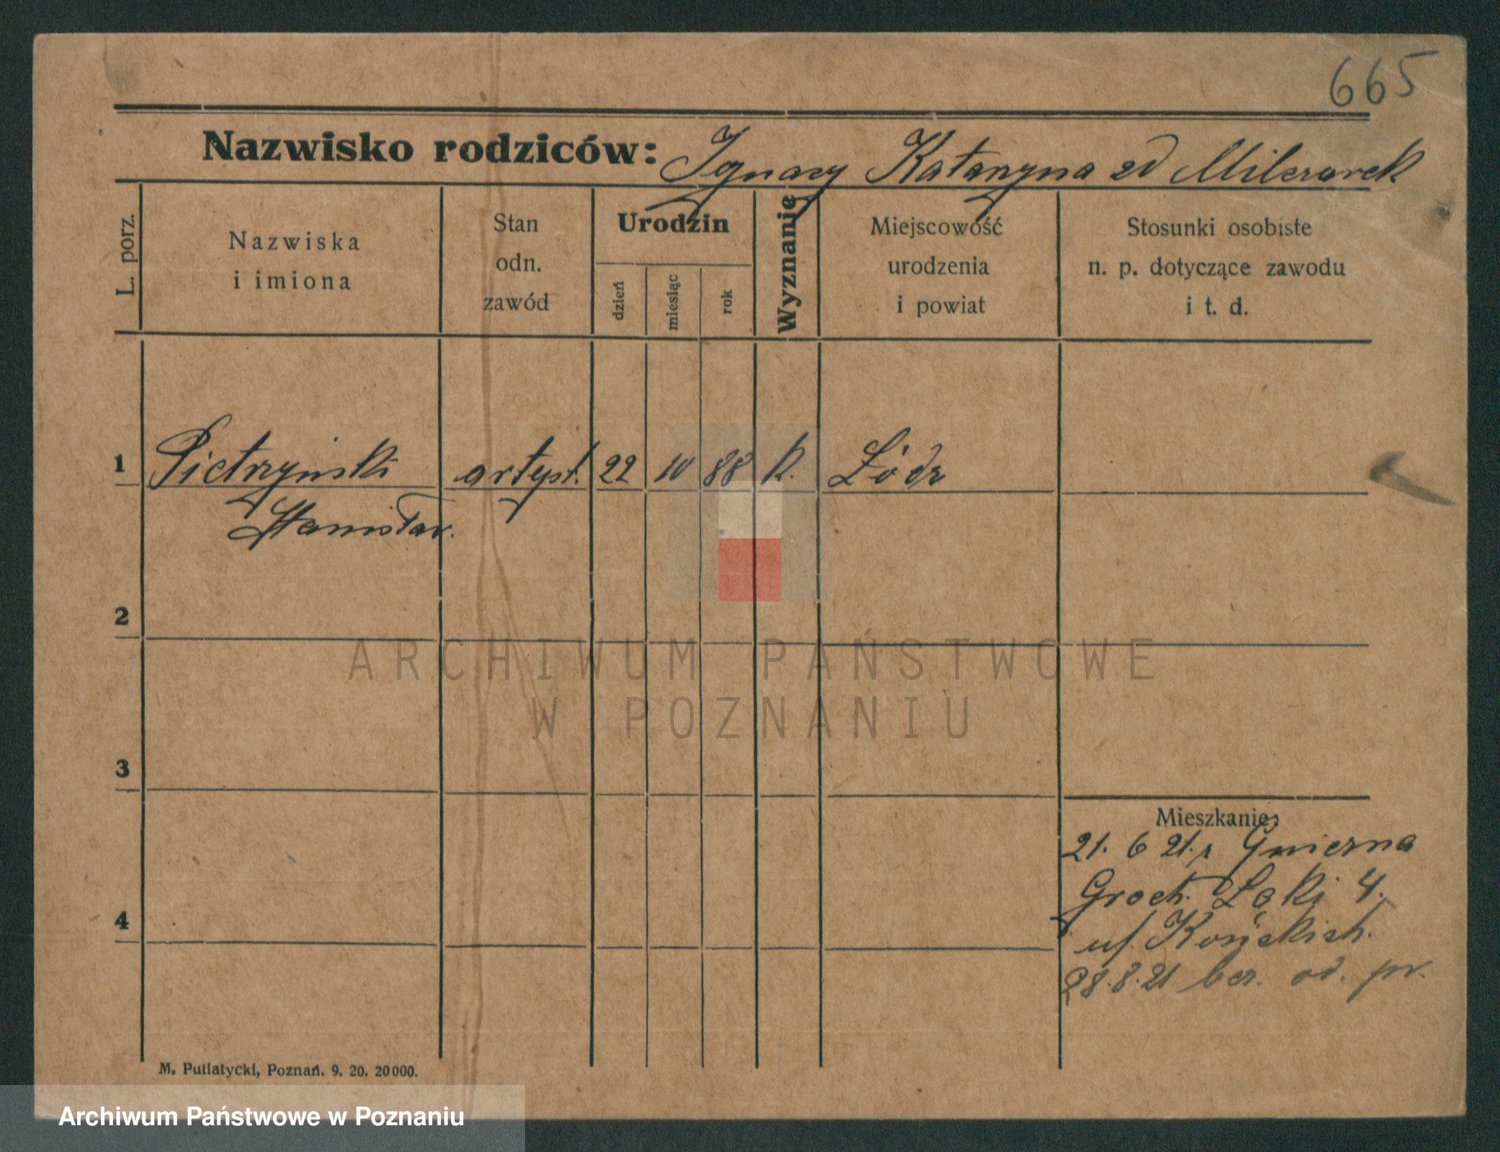 665
Nazwisko rodziców: Ignacy Katarzyna zd Milczarek
L. porz.
Nazwiska
i imiona
Stan
odn.
zawód
Urodzin
dzień
miesiąc
rok
Wyznanie
Miejscowość
urodzenia
i powiat
Stosunki osobiste
n. p. dotyczące zawodu
i t. d.
1 Pietrzyński artyst. 22 10 88 k. Łódz
Stanisław.
2
ARCHIWUM PAŃSTWOWE
W POZNANIU
3
Mieszkanie:
21. 6 21. r Gniezna
4
Groch. Łąki 4.
u/ Końskich.
28.8.21 bez. od. pr.
M. Putiatycki, Poznań. 9. 20. 20000.
Archiwum Państwowe w Poznaniu